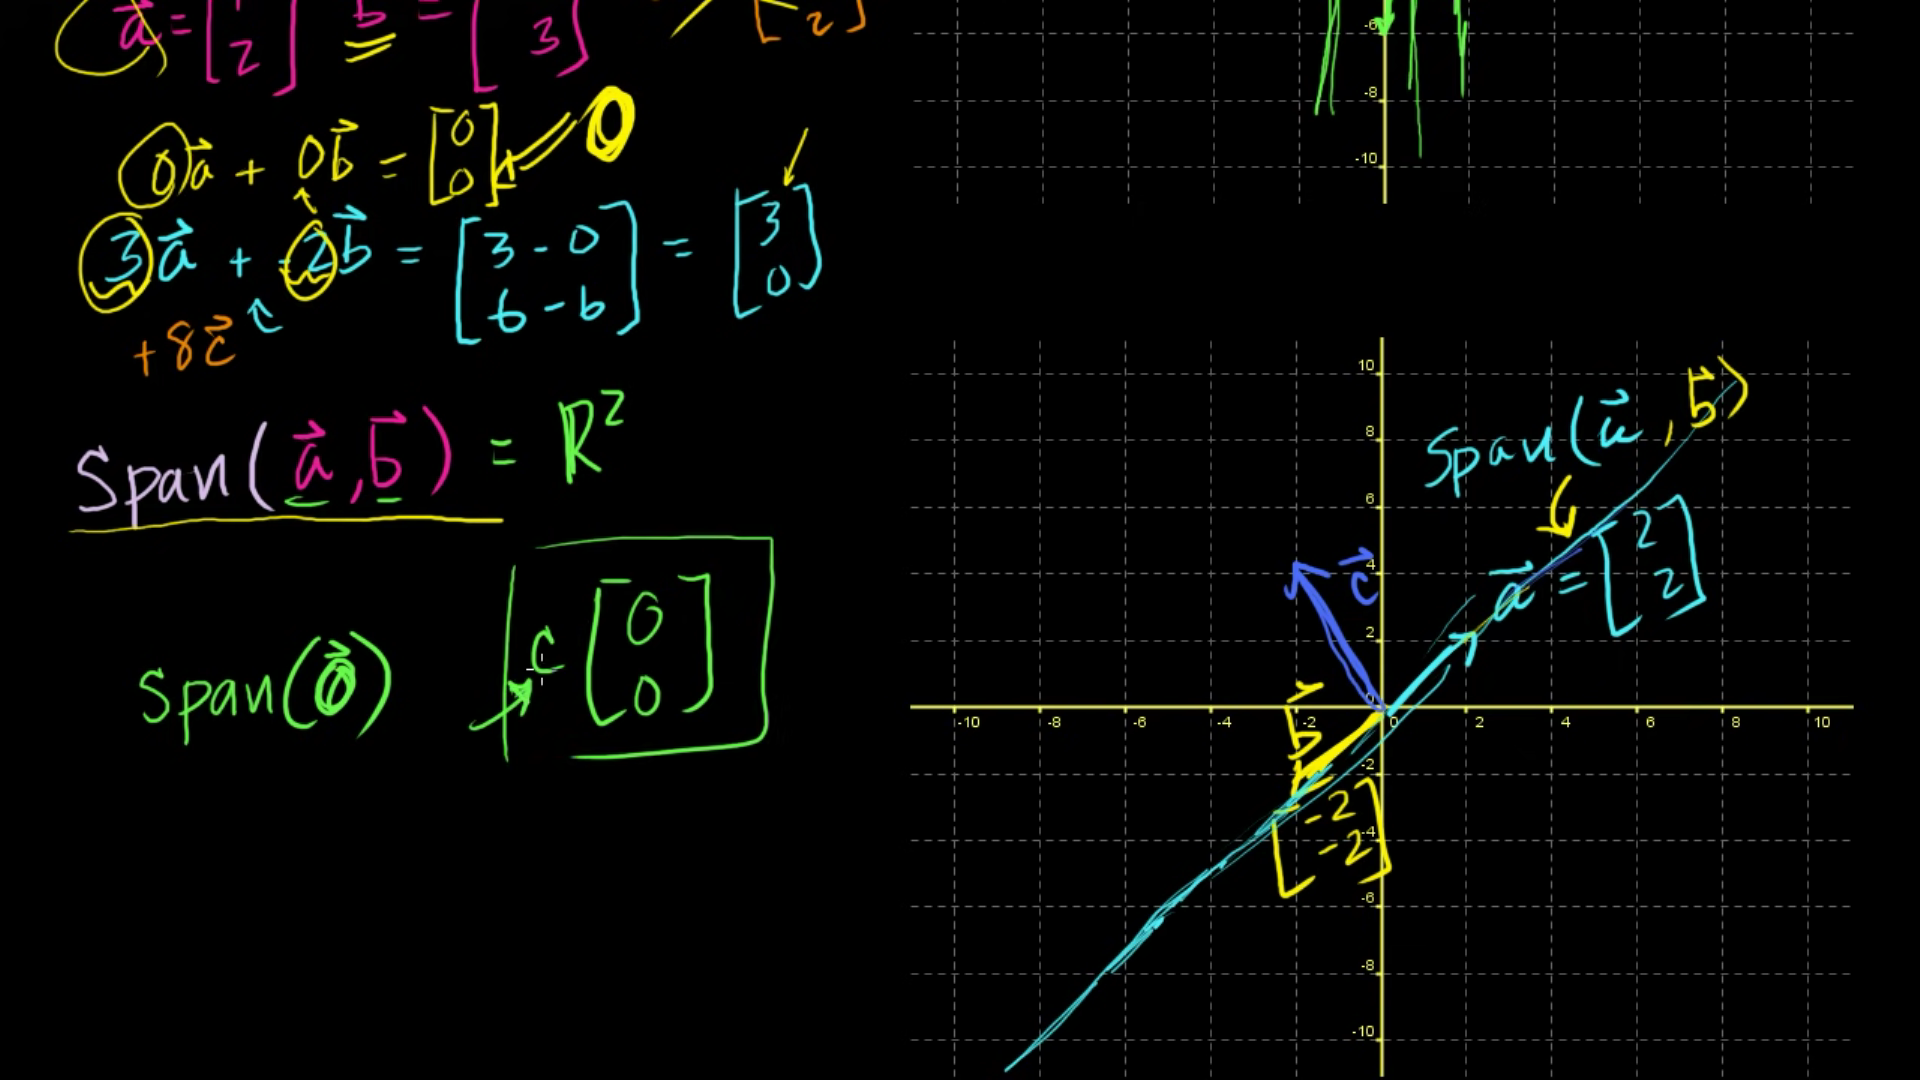 a = [ 2 ] b = [ 3 ] [ 2 ]
0a + 0b = [ 0 0 ] 0
3a + -2b = [ 3 - 0 6 - 6 ] = [ 3 0 ]
+ 8c c
Span(a, b) = R²
Span(0) c [ 0 0 ]
-6
-8
-10
10
8
6
4
2
0
-2
-4
-6
-8
-10
-10 -8 -6 -4 -2 0 2 4 6 8 10
Span(a, b)
a = [ 2 2 ]
c
b
[ -2 -2 ]